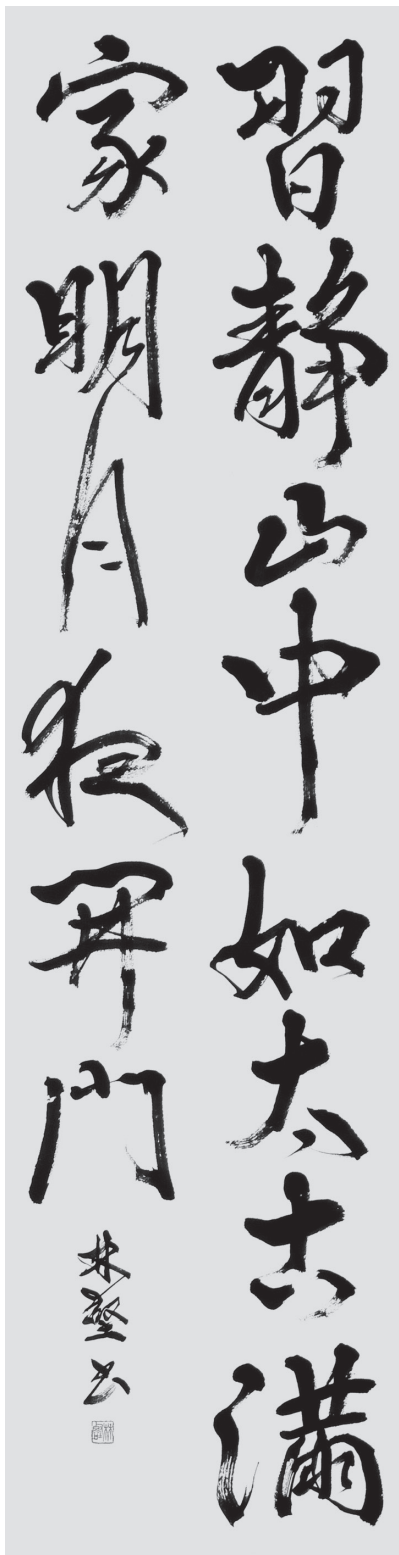 習靜山中如太古滿
家明月夜開門
林壑書